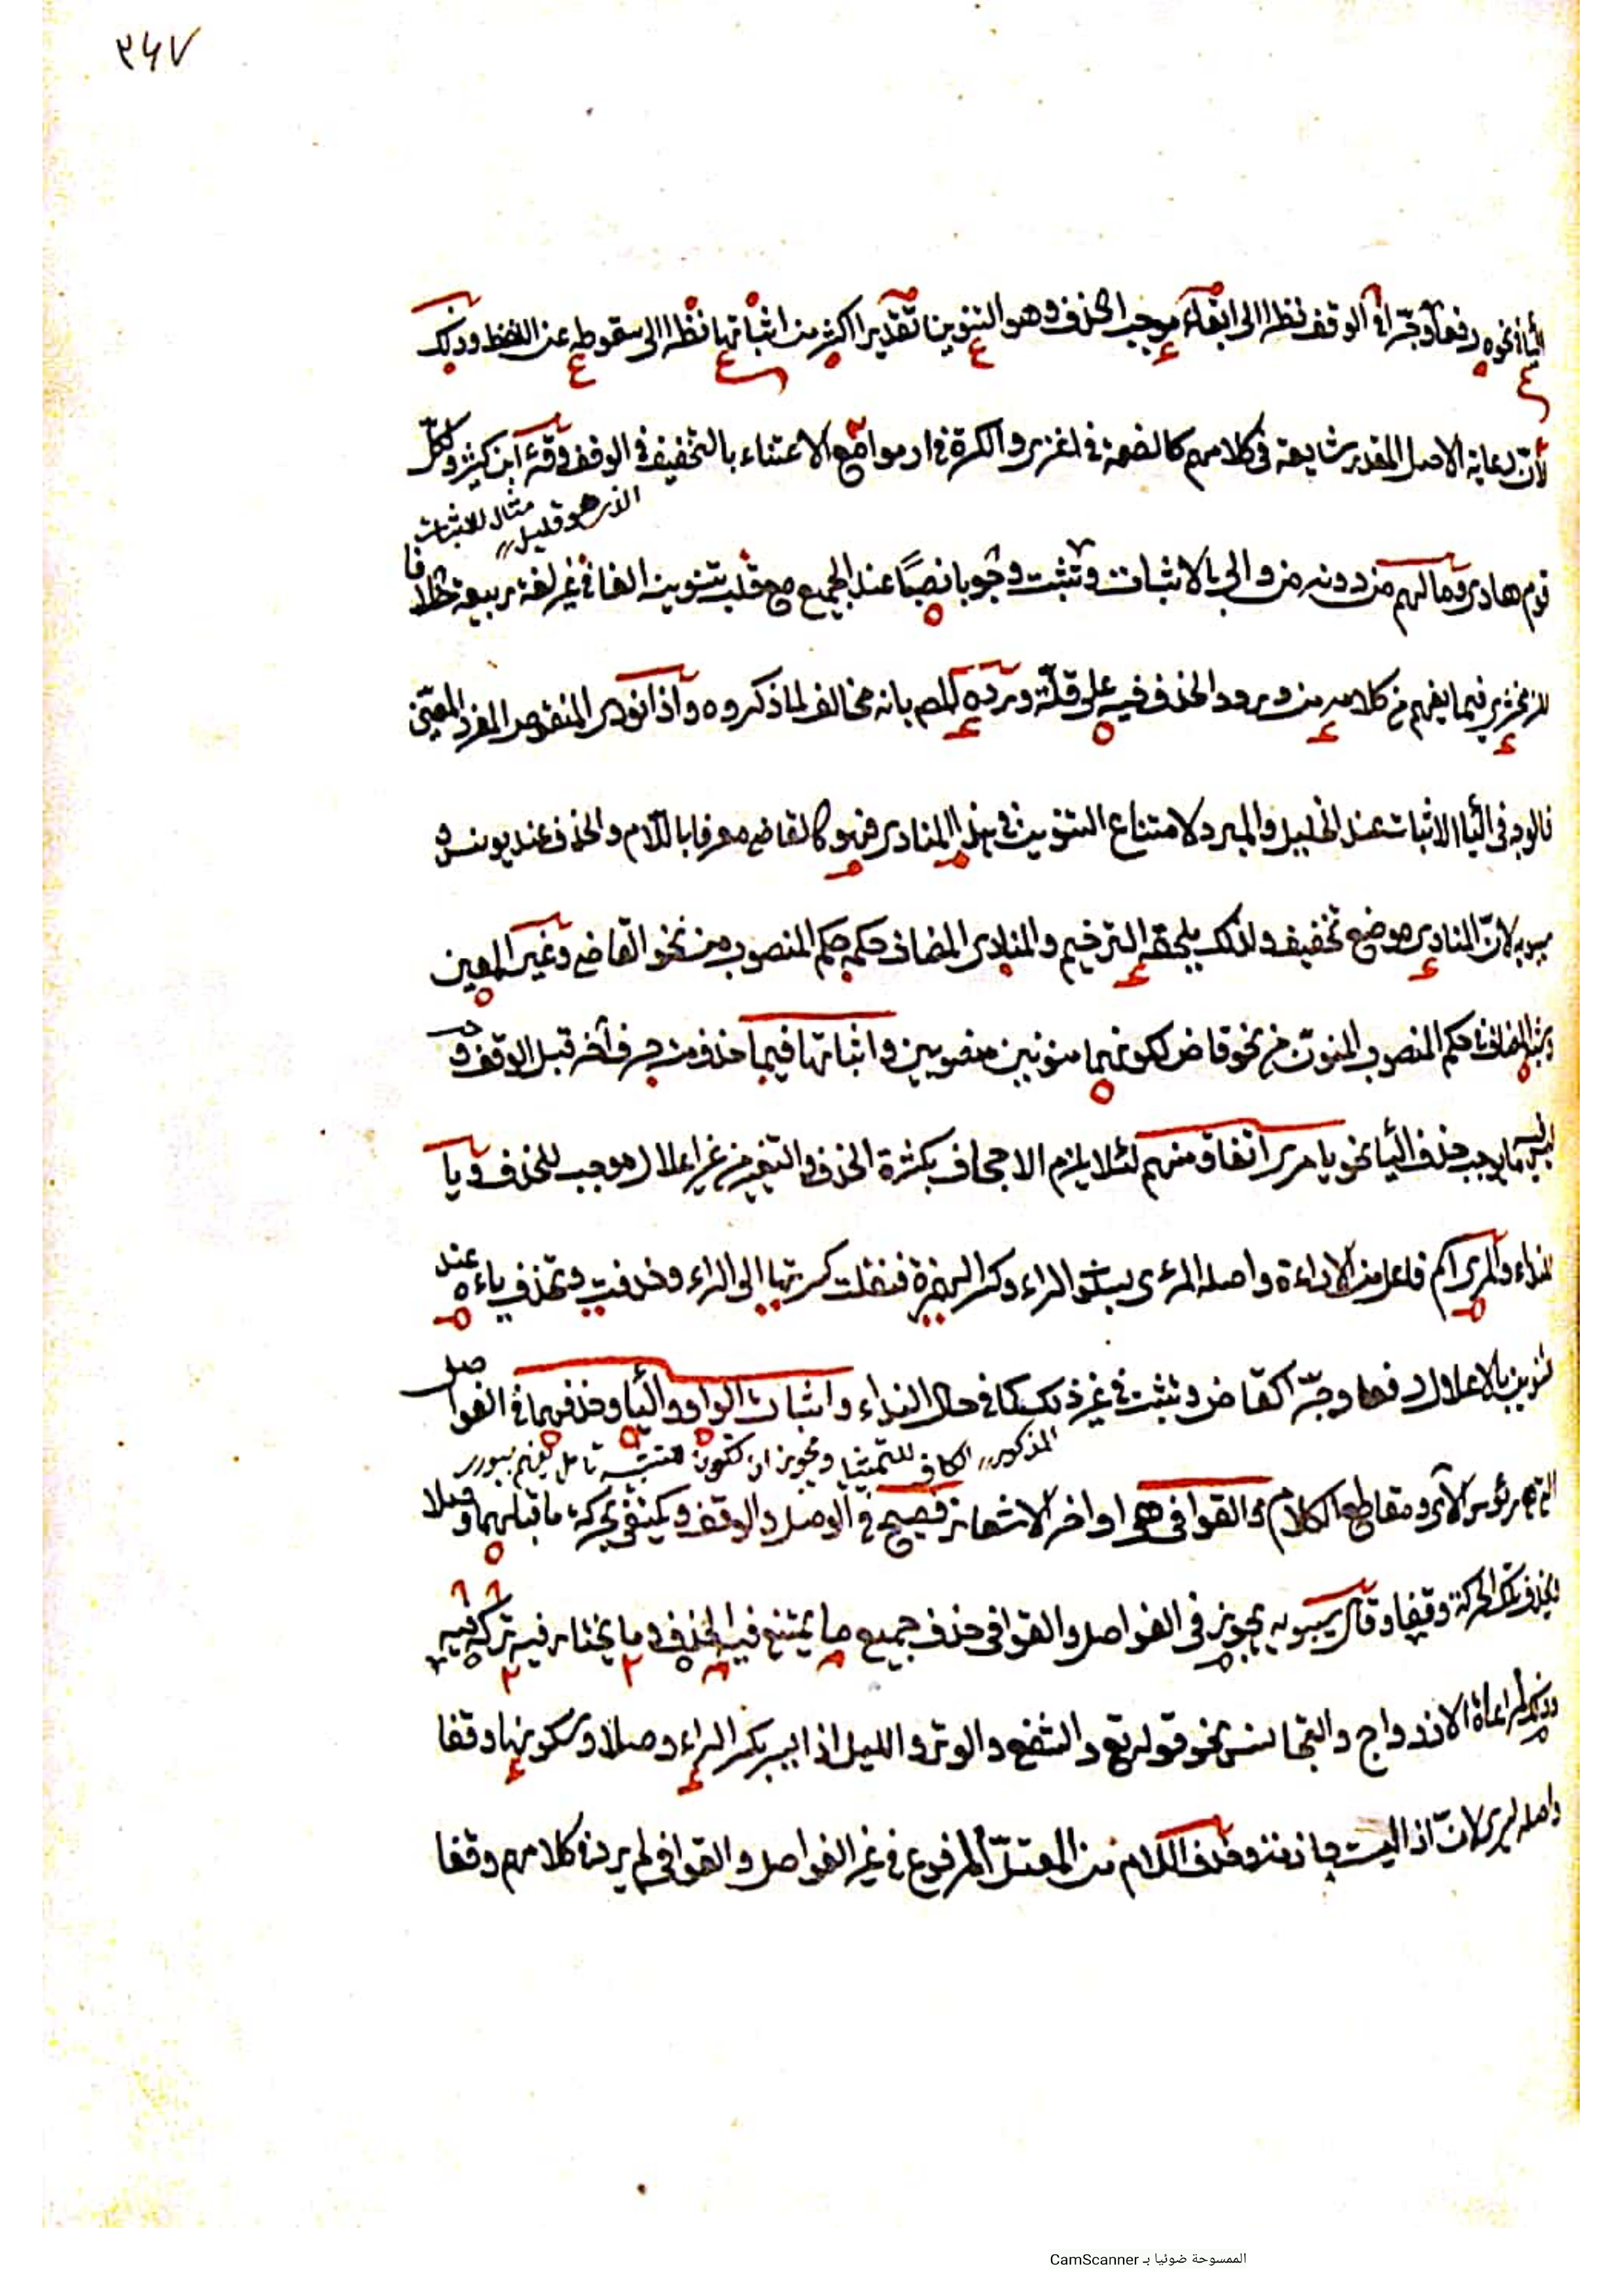 ٣٤٧
الياء في نحوه رفعا وجرّا في الوقف نظرا الى ابقاء موجب الحذف وهو التنوين تقديرا اكثر من اثباتها نظرا الى سقوطه عن اللفظ وذلك
لأنّ رعاية الاصل المقدر شايعة في كلامهم كالضمة في اغزى والكسرة في ارموا مع الاعتناء بالتخفيف في الوقف وقرء ابن كثير ولكلّ
الذى هو قليل
مثال للاثبات
قوم هادى وما لهم من دونه من والى بالاثبات وتثبت وجوبا نصبًا عند الجميع مع قلب تنوينه الفا في غير لغة ربيعة خلافا
للزمخشرى فيما يفهم من كلامه من ورود الحذف فيه على قلّة وردّه المص بانه مخالف لما ذكروه واذا نودى المنقوص المفرد المعيّن
فالوجه فى الياء الاثبات عند الخليل والمبرد لامتناع التنوين في هذا المنادى فهو كالقاضى معرفا باللّام والحذف عند يونس و
سيبويه لانّ المنادى موضع تخفيف ولذلك يلحقه الترخيم والمنادى المضاف حكمه حكم المنصوب من نحو القاضى وغير المعين
وشبه المضاف حكم المنصوب المنون من نحو قاض لكونهما منونين منصوبين واثباتها فيما حذف منه حرف آخر قبل الوقف و
ليس ما يوجب حذف الياء نحو يا مرى اتفاق منهم لئلا يلزم الاجحاف بكثرة الحذف والتغير من غير اعلال موجب للحذف ويا
للنداء والمرى اسم فاعل من الاراءة واصله المرءى بسكون الراء وكسر الهمزة فنقلت كسرتها الى الراء وحذفت وتحذف ياءه عند
تنوين بالاعلال رفعا وجرّا كقاض وتثبت في غير ذلك كما في حال النداء واثبات الواو والياء وحذفهما في الفواصل
المذكور الكاف للتمثيل ويجوز ان تكون للتشبيه تأمل تفهم
التى هى رؤس الآى ومقاطع الكلام والقوافى هى اواخر الاشعار فصيح في الوصل والوقف ويكتفى بحركة ما قبلهما وصلا
وبحذف تلك الحركة وقفا وقال سيبويه يجوز فى الفواصل والقوافى حذف جميع ما يمتنع فيه الحذف وما يختار فيه تركه فيه
وذلك لمراعاة الازدواج والتجانس نحو قوله تع والشفع والوتر والليل اذا يسر بكسر الراء وصلا وسكونها وقفا
واصله يسرى لانّ اذا ليست جازمة وحذف اللام من المعتلّ المرفوع في غير الفواصل والقوافى لم يرد في كلامهم وقفا
الممسوحة ضوئيا بـ CamScanner